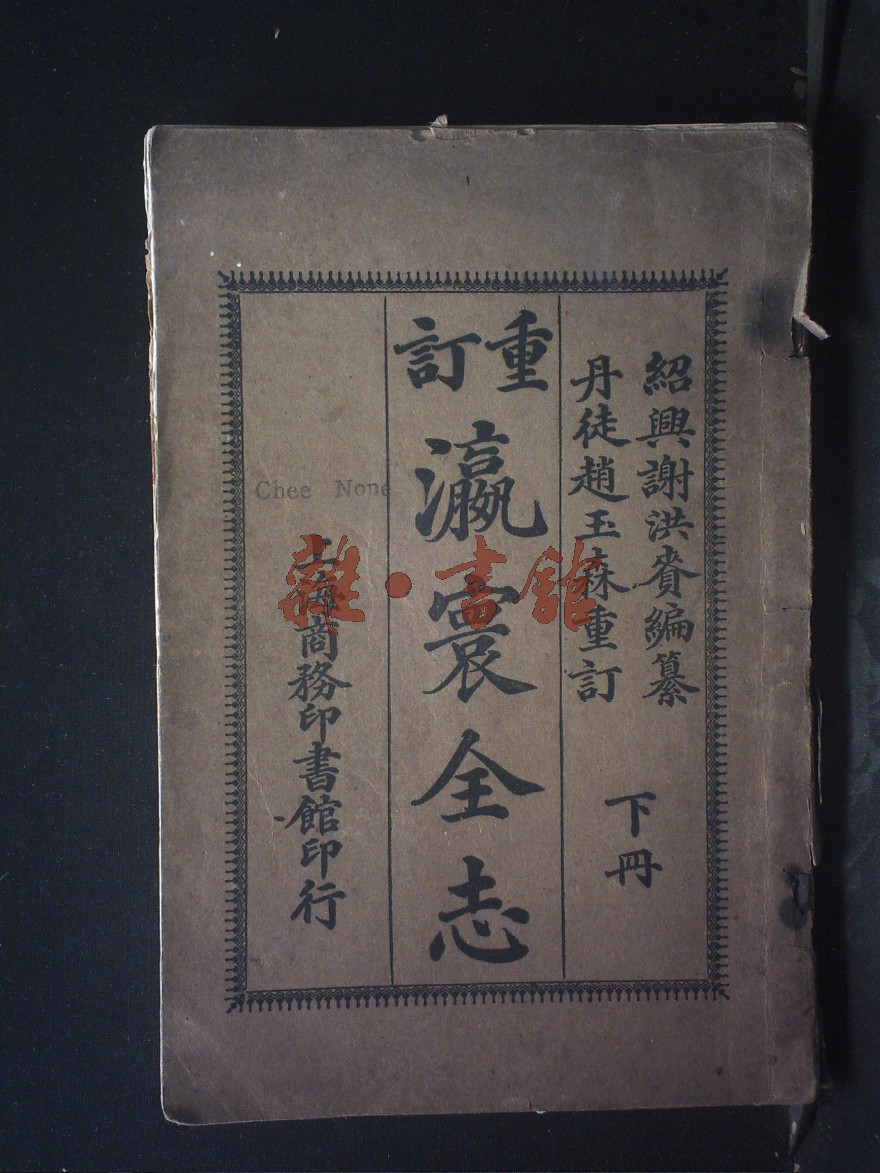 紹興謝洪賚編纂
丹徒趙玉森重訂
下冊
重訂
瀛寰全志
上海商務印書館印行
Chee None
雜·書館